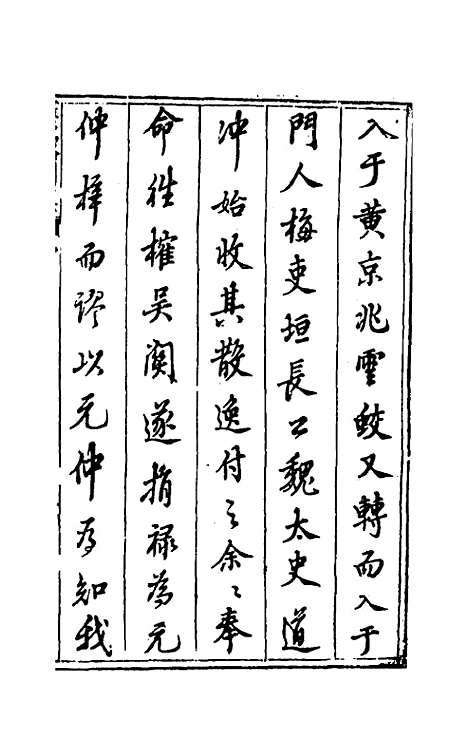 入于黄京兆雲蛟又轉而入于
門人梅吏垣長公魏太史道
冲始收其散逸付之余〻奉
命往榷吴関遂捐禄為元
仲梓而謬以元仲為知我